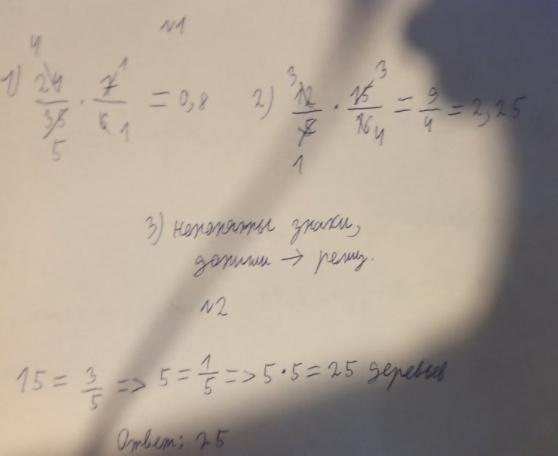 №1
1) 24/35 · 7/6 = 0,8 2) 12/5 · 15/16 = 9/4 = 2,25
3) непонятны знаки,
допиши → реш.
№2
15 = 3/5 => 5 = 1/5 => 5·5 = 25 деревьев
Ответ: 25